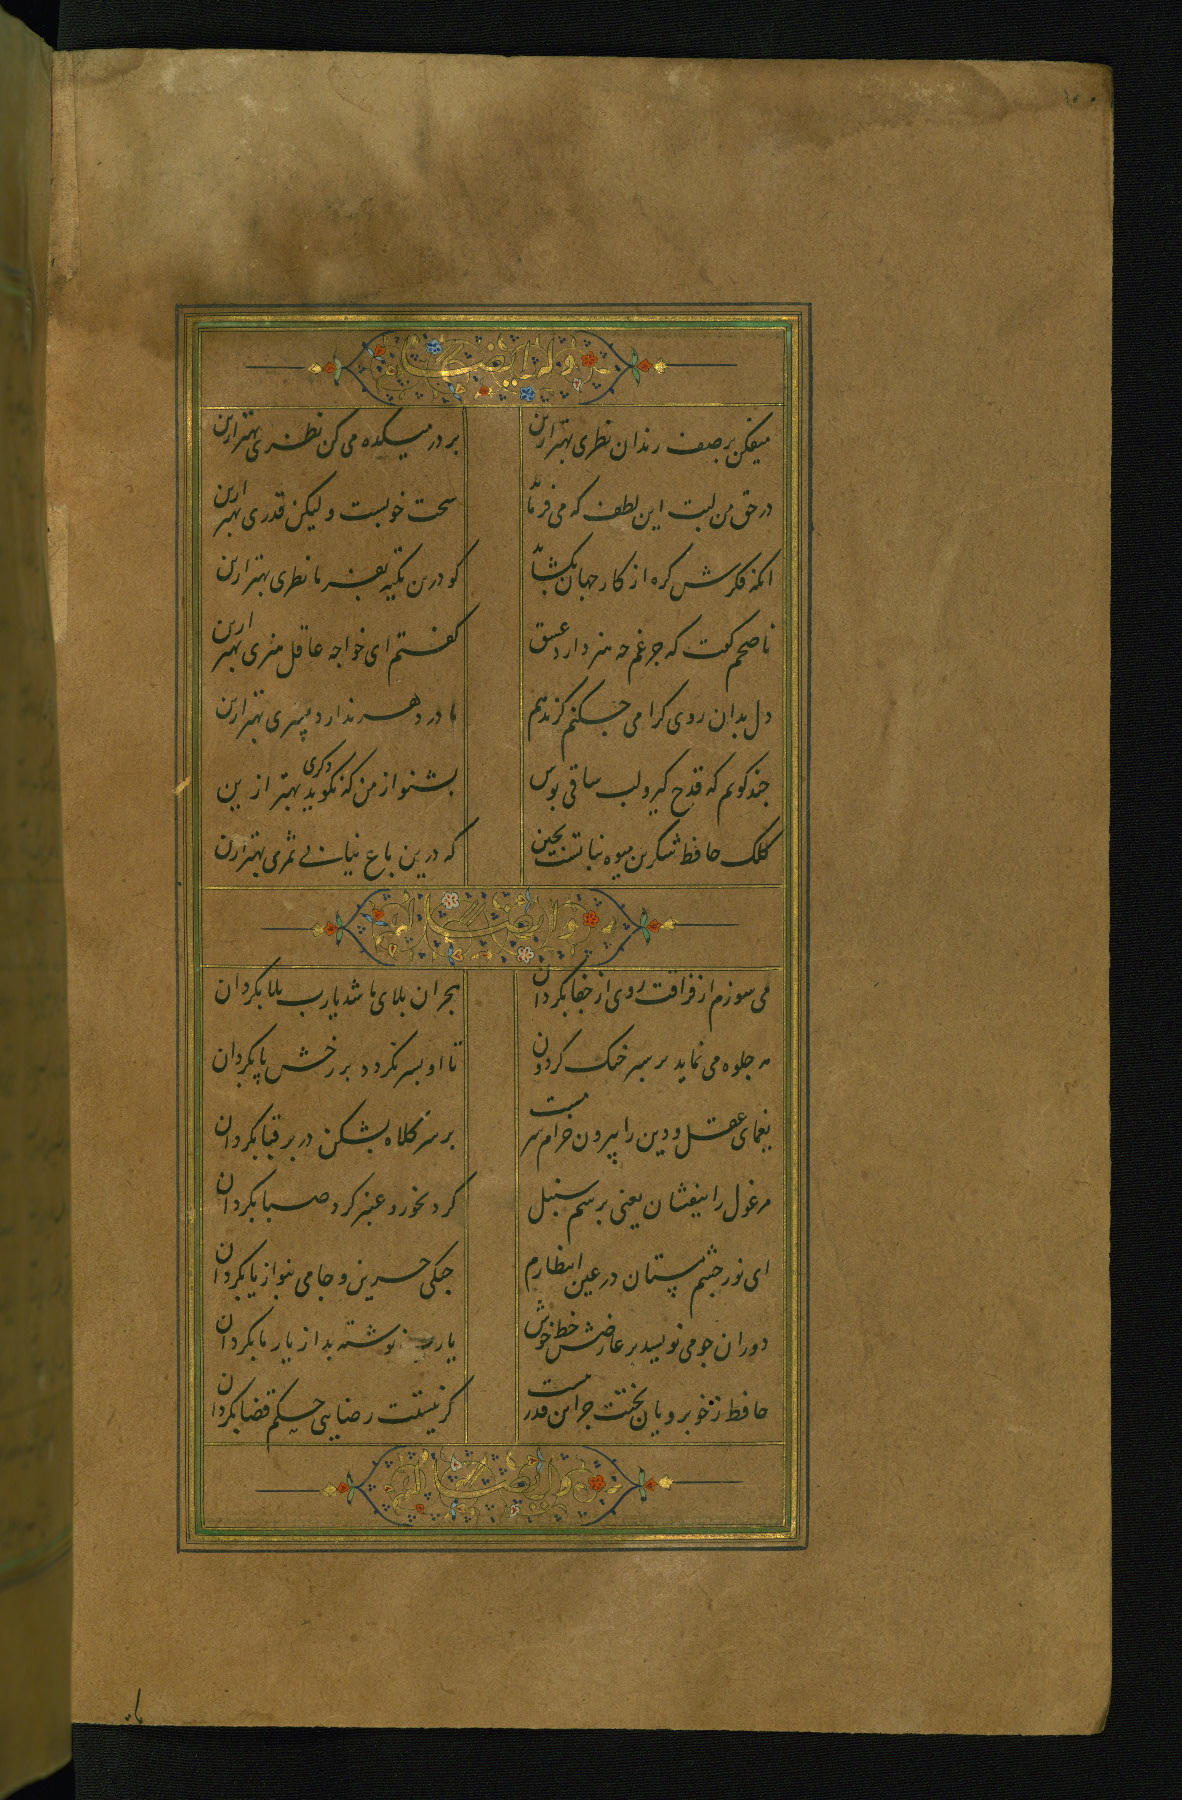 وله ایضا
میفکن بر صف رندان نظری بهتر ازین
بر در میکده می کن نظری بهتر ازین
در حق من لبت این لطف که می فرماید
سخت خوبست ولیکن قدری بهتر ازین
انکه فکرش گره از کار جهان بکشاید
کو درین نکته بفرما نظری بهتر ازین
ناصحم گفت که جز غم چه هنر دارد عشق
گفتم ای خواجه عاقل هنری بهتر ازین
دل بدان روی گرامی چکنم گر ندهم
مادر دهر ندارد پسری بهتر ازین
چند گویم که قدح گیر و لب ساقی بوس
بشنو از من که نگوید دگری بهتر ازین
کلک حافظ شکرین میوه نباتست بچین
که درین باغ نیابی ثمری بهتر ازین
وله ایضا
می سوزم از فراقت روی از جفا بگردان
هجران بلای ما شد یارب بلا بگردان
مه جلوه می نماید بر سبز خنک گردون
تا او بسر نگردد بر رخش پا بگردان
یغمای عقل و دین را بیرون خرام سرمست
بر سر کلاه بشکن در بر قبا بگردان
مرغول را بیفشان یعنی برسم سنبل
گرد بخور و عنبر گرد صبا بگردان
ای نور چشم مستان در عین انتظارم
چنگی حزین و جامی بنواز یا بگردان
دوران چو می نویسد بر عارضش خط خوش
یارب نوشته بد از یار ما بگردان
حافظ ز خوبرویان بختت جز این قدر نیست
گر نیستت رضایی حکم قضا بگردان
وله ایضا
یا